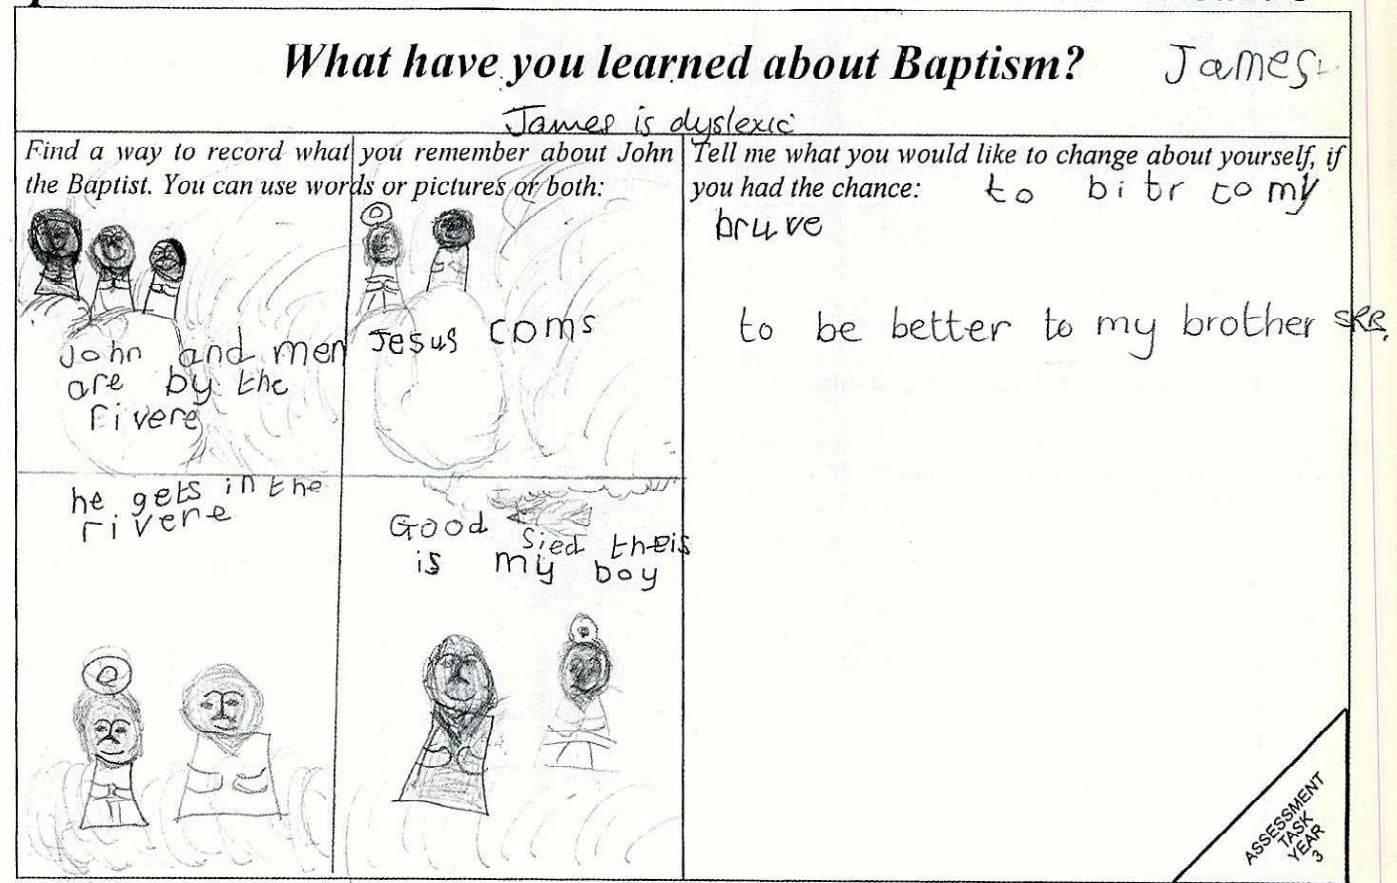 What have you learned about Baptism?
James
James is dyslexic
Find a way to record what you remember about John
the Baptist. You can use words or pictures or both:
John and men
are by the
rivere
Jesus coms
he gets in the
rivere
Good sied theis
is my boy
Tell me what you would like to change about yourself, if
you had the chance: to bitr to my
bruve
to be better to my brother
ASSESSMENT
TASK
YEAR
3